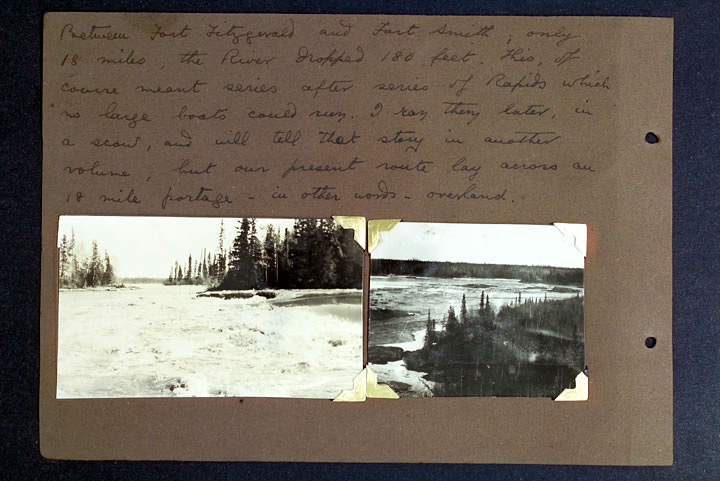 Between Fort Fitzgerald and Fort Smith, only
18 miles, the River dropped 180 feet. This, of
course meant series after series of Rapids which
no large boats could run. I ran them later, in
a scow, and will tell that story in another
volume, but our present route lay across an
18 mile portage - in other words - overland.